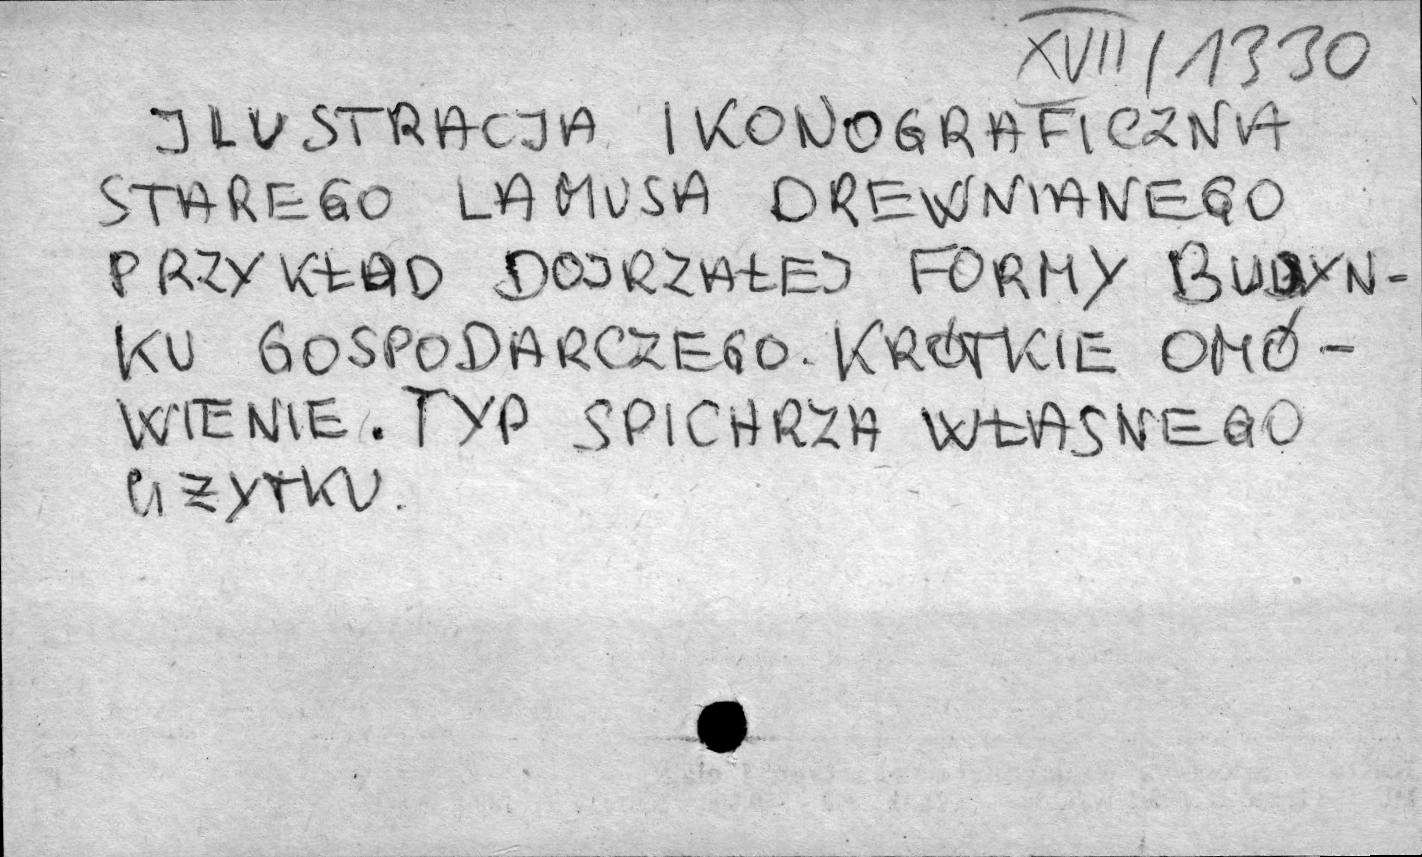 XVII/1330
JLUSTRACJA IKONOGRAFICZNA
STAREGO LAMUSA DREWNIANEGO
PRZYKŁAD DOJRZAŁEJ FORMY BUDYN-
KU GOSPODARCZEGO. KRÓTKIE OMÓ-
WIENIE. TYP SPICHRZA WŁASNEGO
UŻYTKU.